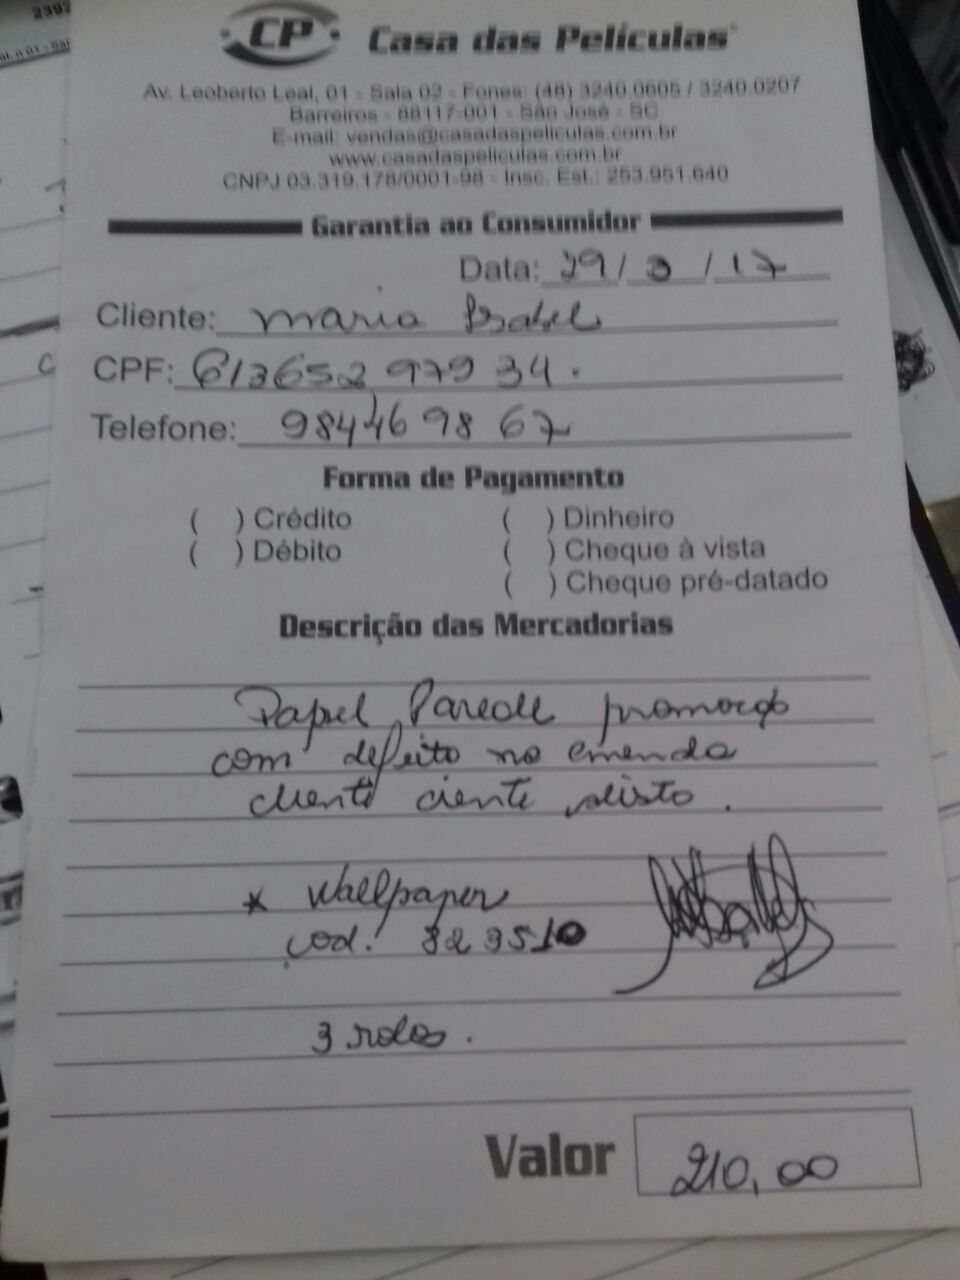 2392
CP Casa das Películas
Av. Leoberto Leal, 01 - Sala 02 - Fones: (48) 3240.0605 / 3240.0207
Barreiros - 88117-001 - São José - SC
E-mail: vendas@casadaspeliculas.com.br
www.casadaspeliculas.com.br
CNPJ 03.319.178/0001-98 - Insc. Est.: 253.951.640
Garantia ao Consumidor
Data: 29/3/17
Cliente: Maria Isabel
CPF: 613652 979 34.
Telefone: 984469867
Forma de Pagamento
( ) Crédito ( ) Dinheiro
( ) Débito ( ) Cheque à vista
( ) Cheque pré-datado
Descrição das Mercadorias
Papel Parede promoção
com defeito na emenda
cliente ciente disto.
* Wallpaper
cod: 823510
3 rolos.
Valor 210,00